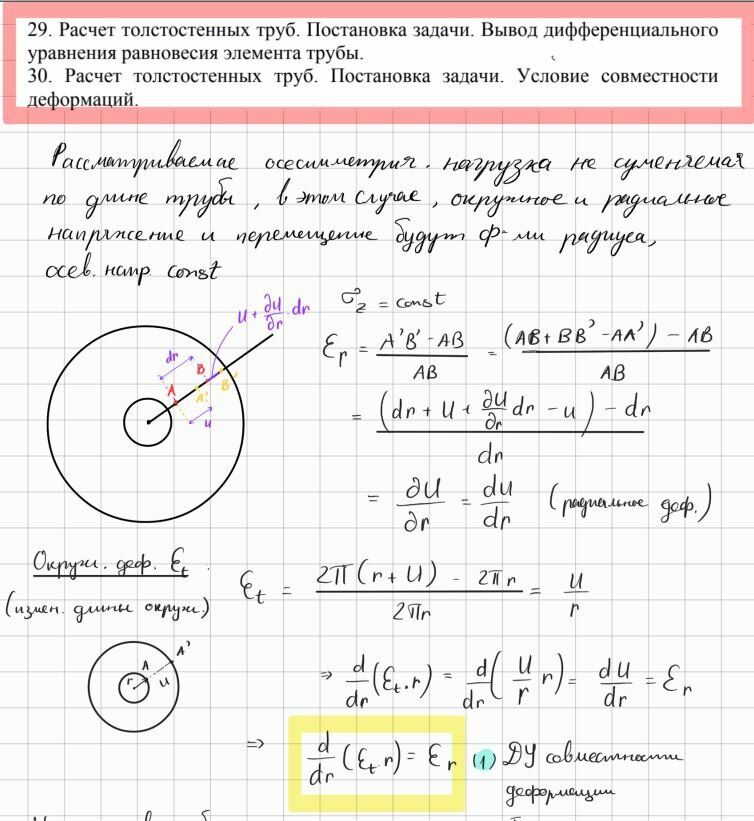 29. Расчет толстостенных труб. Постановка задачи. Вывод дифференциального
уравнения равновесия элемента трубы.
30. Расчет толстостенных труб. Постановка задачи. Условие совместности
деформаций.
Рассматриваемае осесиметрия. нагрузка не суменяемая
по длине трубы, в этом случае, окружное и радиальное
напряжение и перемещение будут ф-ми радиуса,
осев. напр. const
σz = const
U + ∂U/∂r · dr
dr
B
B'
A
A'
u
εr = (A'B' - AB)/AB = ((AB + BB' - AA') - AB)/AB
= ((dr + U + ∂U/∂r dr - u) - dr)/dr
= ∂U/∂r = dU/dr (радиальное деф.)
Окружн. деф. εt.
(измен. длины окружн.)
εt = (2π(r + U) - 2πr)/2πr = u/r
A
A'
r
u
⇒ d/dr (εt · r) = d/dr (U/r r) = dU/dr = εr
⇒ d/dr (εt r) = εr (1) ДУ совместности
деформации